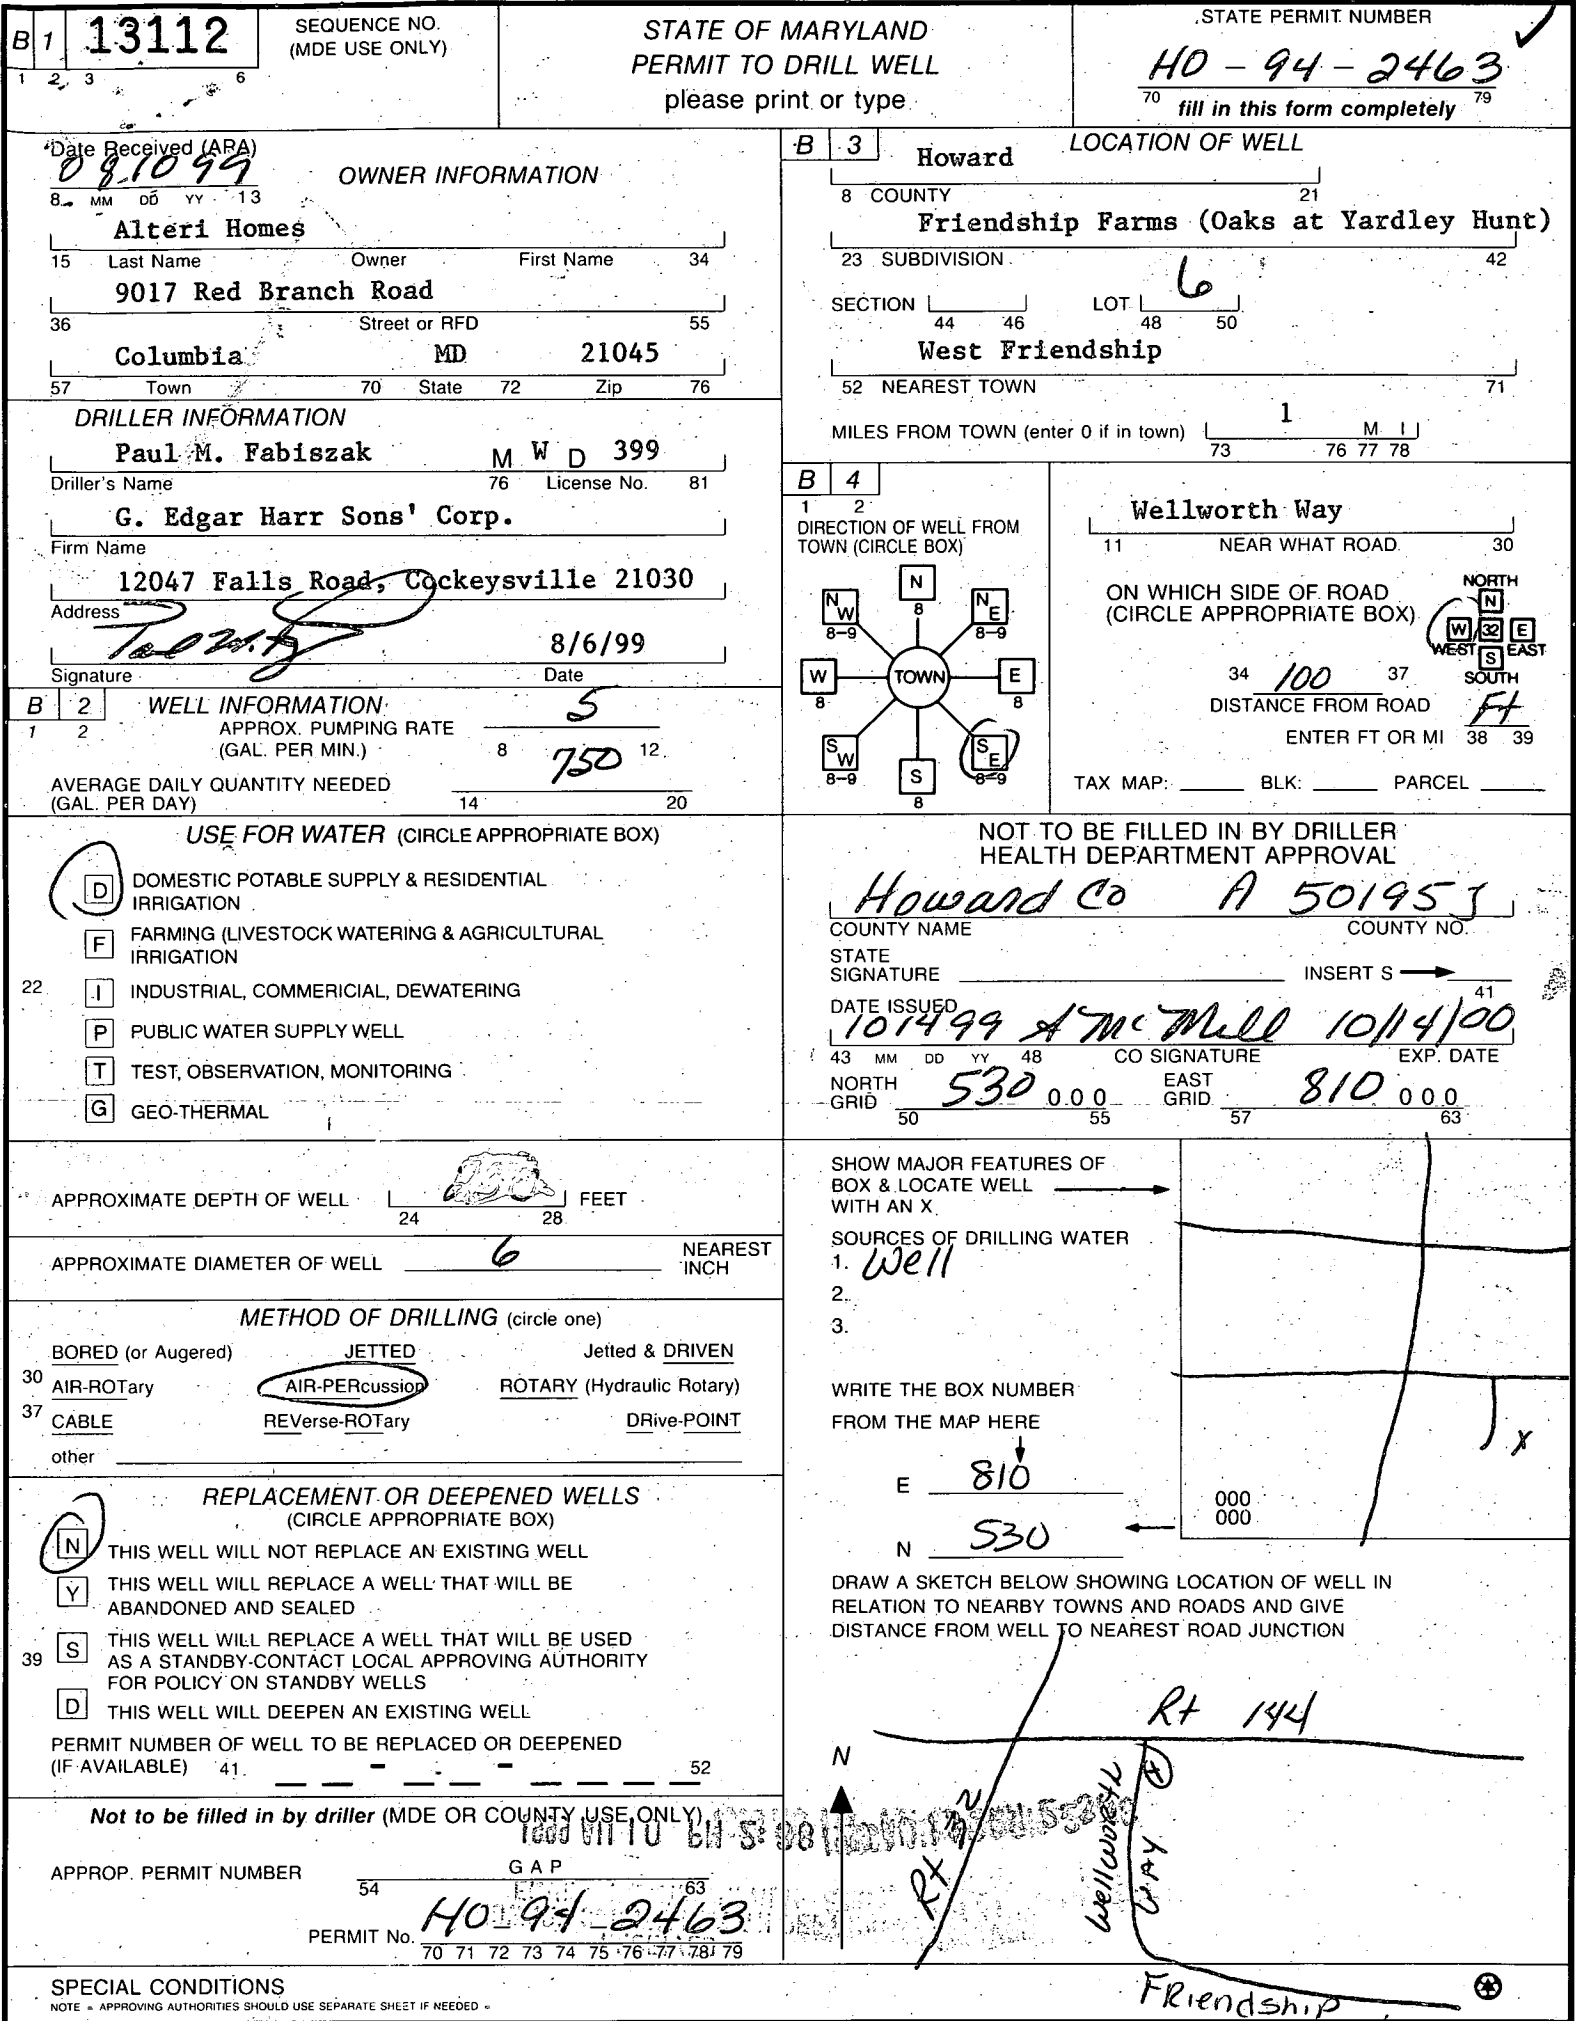 B 1 13112
1 2 3 6
SEQUENCE NO.
(MDE USE ONLY)
STATE OF MARYLAND
PERMIT TO DRILL WELL
please print or type
STATE PERMIT NUMBER
HO - 94 - 2463
70 fill in this form completely 79
Date Received (APA)
081099
8 MM DD YY 13
OWNER INFORMATION
Alteri Homes
15 Last Name Owner First Name 34
9017 Red Branch Road
36 Street or RFD 55
Columbia MD 21045
57 Town 70 State 72 Zip 76
DRILLER INFORMATION
Paul M. Fabiszak M W D 399
Driller's Name 76 License No. 81
G. Edgar Harr Sons' Corp.
Firm Name
12047 Falls Road, Cockeysville 21030
Address
8/6/99
Signature Date
B 2 WELL INFORMATION
1 2 APPROX. PUMPING RATE 5
(GAL. PER MIN.) 8 12
AVERAGE DAILY QUANTITY NEEDED 750
(GAL. PER DAY) 14 20
USE FOR WATER (CIRCLE APPROPRIATE BOX)
D DOMESTIC POTABLE SUPPLY & RESIDENTIAL
IRRIGATION
F FARMING (LIVESTOCK WATERING & AGRICULTURAL
IRRIGATION
22 I INDUSTRIAL, COMMERICIAL, DEWATERING
P PUBLIC WATER SUPPLY WELL
T TEST, OBSERVATION, MONITORING
G GEO-THERMAL
APPROXIMATE DEPTH OF WELL FEET
24 28
APPROXIMATE DIAMETER OF WELL 6 NEAREST
INCH
METHOD OF DRILLING (circle one)
BORED (or Augered) JETTED Jetted & DRIVEN
30 AIR-ROTary AIR-PERcussion ROTARY (Hydraulic Rotary)
37 CABLE REVerse-ROTary DRive-POINT
other
REPLACEMENT OR DEEPENED WELLS
(CIRCLE APPROPRIATE BOX)
N THIS WELL WILL NOT REPLACE AN EXISTING WELL
Y THIS WELL WILL REPLACE A WELL THAT WILL BE
ABANDONED AND SEALED
39 S THIS WELL WILL REPLACE A WELL THAT WILL BE USED
AS A STANDBY-CONTACT LOCAL APPROVING AUTHORITY
FOR POLICY ON STANDBY WELLS
D THIS WELL WILL DEEPEN AN EXISTING WELL
PERMIT NUMBER OF WELL TO BE REPLACED OR DEEPENED
(IF AVAILABLE) 41 - - 52
Not to be filled in by driller (MDE OR COUNTY USE ONLY)
APPROP. PERMIT NUMBER G A P
54 63
PERMIT No. HO-94-2463
70 71 72 73 74 75 76 77 78 79
SPECIAL CONDITIONS
NOTE = APPROVING AUTHORITIES SHOULD USE SEPARATE SHEET IF NEEDED =
B 3 LOCATION OF WELL
Howard
8 COUNTY 21
Friendship Farms (Oaks at Yardley Hunt)
23 SUBDIVISION 42
SECTION LOT 6
44 46 48 50
West Friendship
52 NEAREST TOWN 71
MILES FROM TOWN (enter 0 if in town) 1 M I
73 76 77 78
B 4
1 2
DIRECTION OF WELL FROM
TOWN (CIRCLE BOX)
N
8
NW NE
8-9 8-9
W TOWN E
8 8
SW SE
8-9 8-9
S
8
Wellworth Way
11 NEAR WHAT ROAD 30
ON WHICH SIDE OF ROAD
(CIRCLE APPROPRIATE BOX)
NORTH
N
W 32 E
WEST EAST
S
SOUTH
34 100 37
DISTANCE FROM ROAD Ft
ENTER FT OR MI 38 39
TAX MAP: BLK: PARCEL
NOT TO BE FILLED IN BY DRILLER
HEALTH DEPARTMENT APPROVAL
Howard Co A 50195J
COUNTY NAME COUNTY NO.
STATE
SIGNATURE INSERT S
41
DATE ISSUED
101499 A McMill 10/14/00
43 MM DD YY 48 CO SIGNATURE EXP. DATE
NORTH
GRID 530 000 EAST
GRID 810 000
50 55 57 63
SHOW MAJOR FEATURES OF
BOX & LOCATE WELL
WITH AN X
SOURCES OF DRILLING WATER
1. Well
2.
3.
WRITE THE BOX NUMBER
FROM THE MAP HERE
E 810
N 530
X
000
000
DRAW A SKETCH BELOW SHOWING LOCATION OF WELL IN
RELATION TO NEARBY TOWNS AND ROADS AND GIVE
DISTANCE FROM WELL TO NEAREST ROAD JUNCTION
Rt 144
N
Rt 32
Wellworth
WAY
Friendship